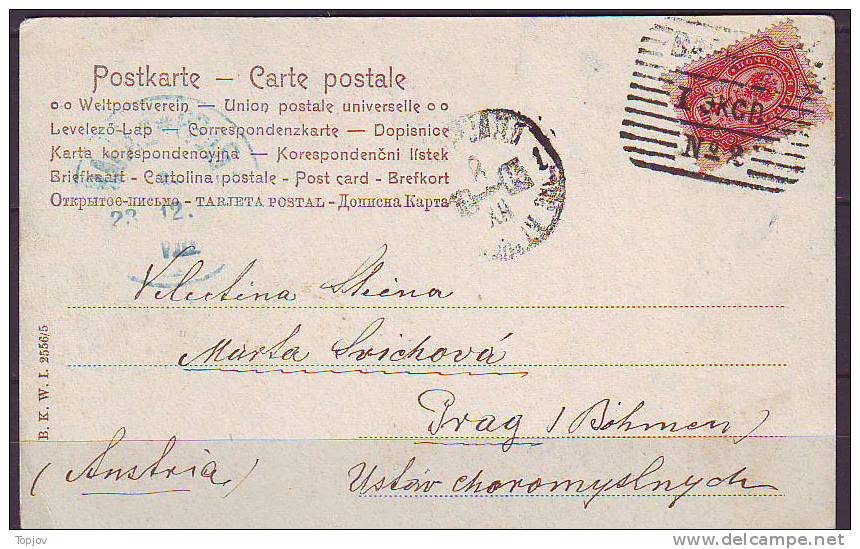 Postkarte — Carte postale
Weltpostverein — Union postale universelle
Levelező-Lap — Correspondenzkarte — Dopisnice
Karta korespondencyjna — Korespondenční lístek
Briefkaart — Cartolina postale — Post card — Brefkort
Открытое письмо — TARJETA POSTAL — Дописна Карта
23 12.
VIII
No 2
Velectěna Slečna
Marta Svichová
Prag / Böhmen /
(Austria)
Ustáv choromyslnych
B. K. W. I. 2556/5
Topjov
delcampe.net